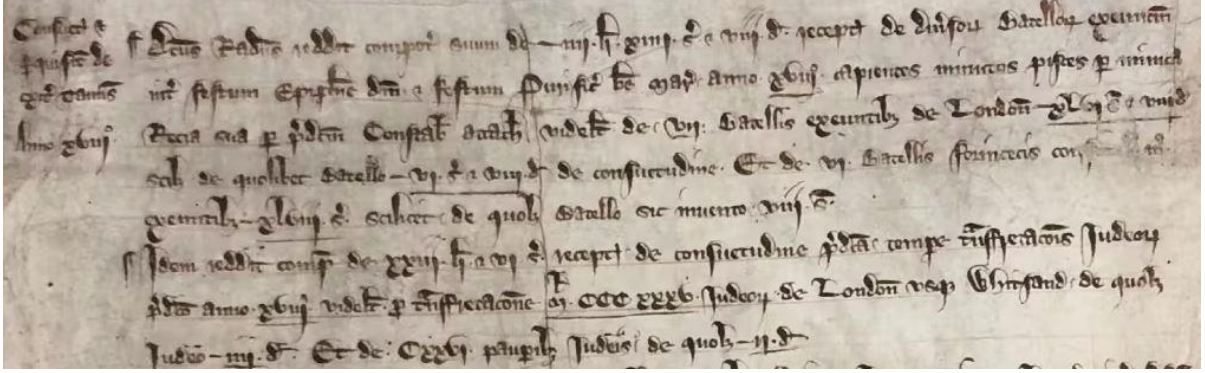 Consuet &
p'quisit de
Anno xviij°
Dcus Radus reddit compot suum de — iiij. li. xiiij. s. & viij. d. recept de diu'sor Batellor exeuncm
int' festum Epiphie dni & festum Purific be Mar. anno xviij° capientes minutos pisces p minuta
Recia sua p p'dcm Constab attach videlt de vij. Batellis exeuntib de London — xlvi s & viij d
scilt de quolibet Batello — vi. s. & viij. d. de consuetudine. Et de vi Batellis forincecis con
exeuntib — xlviij. s. scilicet de quolb Batello sic invento viij. s.
Idem reddit comp de xxiij. li. & vi s. recept de consuetudine p'dca tempe t'nsfretacois Judeor
p'dco anno xviij° videlt p t'nsfretacone M. CCC xxxv. Judeor de London usq Whitsand de quolb
Judeo — iiij. d. Et de Cxxvi. paup'ib Judeis de quolb — ij. d